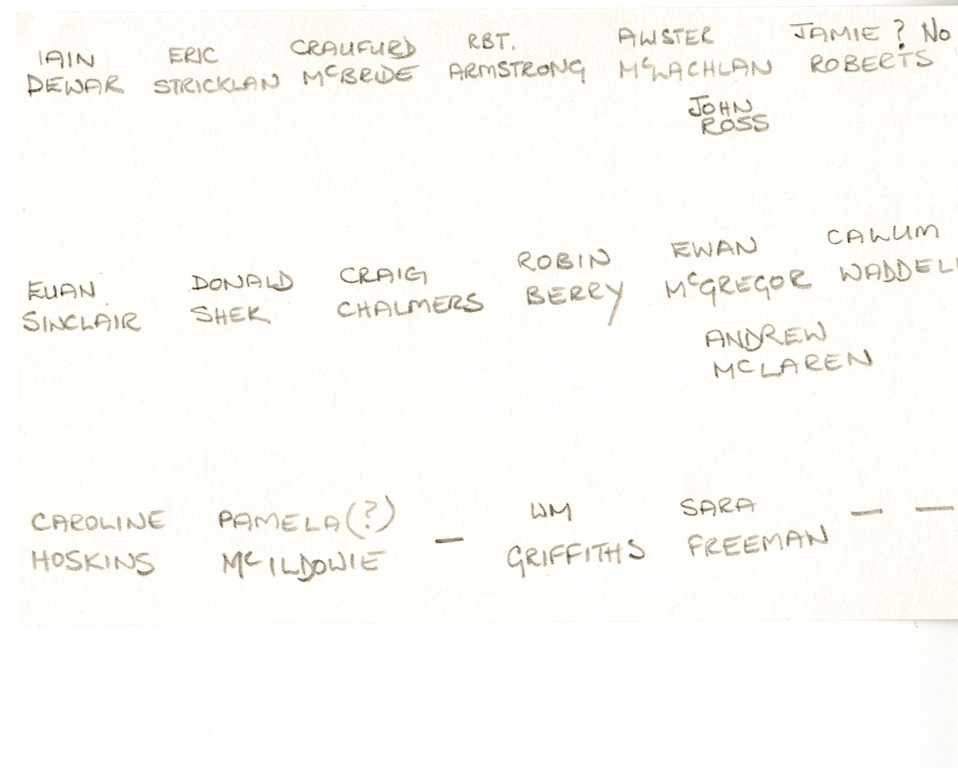 IAIN ERIC CRAUFURD RBT. ALISTER JAMIE ? No
DEWAR STRICKLAN McBRIDE ARMSTRONG McLACHLAN ROBERTS
JOHN
ROSS
EUAN DONALD CRAIG ROBIN EWAN CALLUM
SINCLAIR SHEK CHALMERS BERRY McGREGOR WADDELL
ANDREW
McLAREN
CAROLINE PAMELA(?) — WM SARA — —
HOSKINS McILDOWIE GRIFFITHS FREEMAN